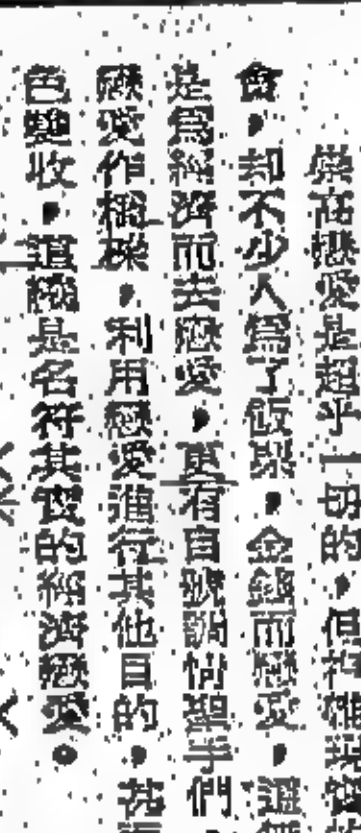 崇高戀愛是超乎一切的，但在現實的
會，却不少人爲了飯票，金錢而戀愛，這
是爲經濟而去戀愛，更有自號調情聖手們，
戀愛作橋樑，利用戀愛進行其他目的，甚
色雙收，這纔是名符其實的經濟戀愛。